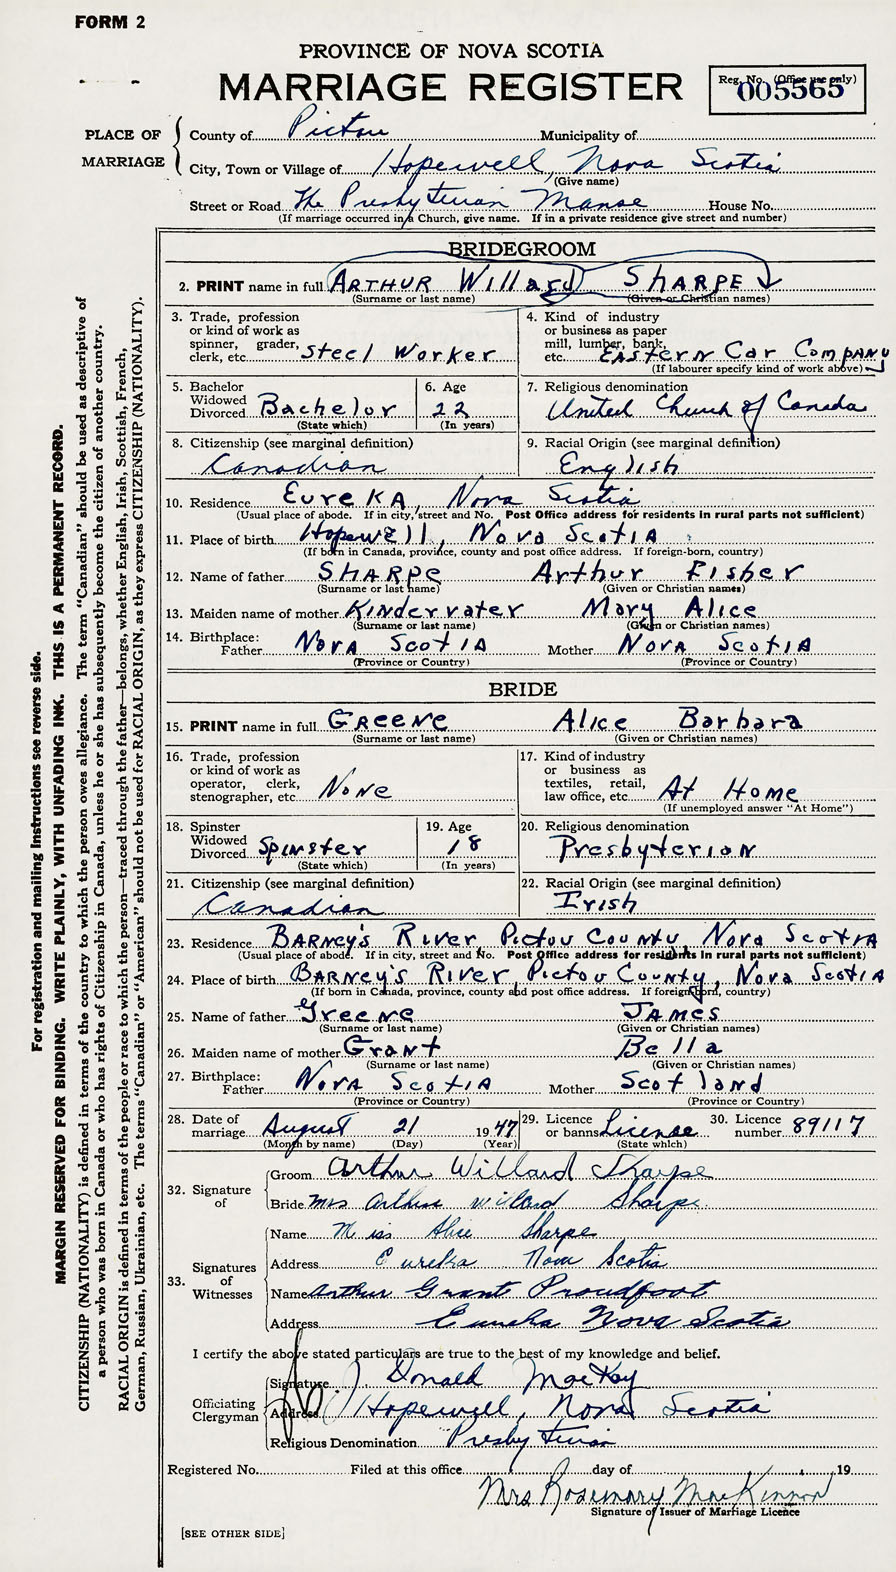 FORM 2
PROVINCE OF NOVA SCOTIA
MARRIAGE REGISTER
Reg. No. (Office use only)
005565
PLACE OF MARRIAGE
County of Pictou Municipality of
City, Town or Village of Hopewell, Nova Scotia
(Give name)
Street or Road The Presbyterian Manse House No.
(If marriage occurred in a Church, give name. If in a private residence give street and number)
BRIDEGROOM
2. PRINT name in full ARTHUR Willard SHARPE
(Surname or last name) (Given or Christian names)
3. Trade, profession or kind of work as spinner, grader, clerk, etc. Steel Worker
4. Kind of industry or business as paper mill, lumber, bank, etc. EASTERN Car COMPANY
(If labourer specify kind of work above)
5. Bachelor Widowed Divorced Bachelor
(State which)
6. Age 22
(In years)
7. Religious denomination United Church of Canada
8. Citizenship (see marginal definition) Canadian
9. Racial Origin (see marginal definition) English
10. Residence EureKA, Nova Scotia
(Usual place of abode. If in city, street and No. Post Office address for residents in rural parts not sufficient)
11. Place of birth Hopewell, Nova Scotia
(If born in Canada, province, county and post office address. If foreign-born, country)
12. Name of father SHARPE Arthur Fisher
(Surname or last name) (Given or Christian names)
13. Maiden name of mother Kindervater Mary Alice
(Surname or last name) (Given or Christian names)
14. Birthplace: Father Nova Scotia Mother Nova Scotia
(Province or Country) (Province or Country)
BRIDE
15. PRINT name in full GREENE Alice Barbara
(Surname or last name) (Given or Christian names)
16. Trade, profession or kind of work as operator, clerk, stenographer, etc. None
17. Kind of industry or business as textiles, retail, law office, etc. At Home
(If unemployed answer "At Home")
18. Spinster Widowed Divorced Spinster
(State which)
19. Age 18
(In years)
20. Religious denomination Presbyterian
21. Citizenship (see marginal definition) Canadian
22. Racial Origin (see marginal definition) Irish
23. Residence BARNEY'S River, Pictou County, Nova Scotia
(Usual place of abode. If in city, street and No. Post Office address for residents in rural parts not sufficient)
24. Place of birth BARNEY'S River, Pictou County, Nova Scotia
(If born in Canada, province, county and post office address. If foreign-born, country)
25. Name of father Greene JAMES
(Surname or last name) (Given or Christian names)
26. Maiden name of mother Grant Bella
(Surname or last name) (Given or Christian names)
27. Birthplace: Father Nova Scotia Mother Scotland
(Province or Country) (Province or Country)
28. Date of marriage August 21 1947
(Month by name) (Day) (Year)
29. Licence or banns License
(State which)
30. Licence number 89117
32. Signature of
Groom Arthur Willard Sharpe
Bride Mrs Arthur Willard Sharpe
33. Signatures of Witnesses
Name Miss Alice Sharpe
Address Eureka Nova Scotia
Name Arthur Grant Proudfoot
Address Eureka Nova Scotia
I certify the above stated particulars are true to the best of my knowledge and belief.
Officiating Clergyman
Signature J. Donald MacKay
Address Hopewell, Nova Scotia
Religious Denomination Presbyterian
Registered No. Filed at this office day of 19
Mrs Rosemary MacKinnon
Signature of Issuer of Marriage Licence
[SEE OTHER SIDE]
For registration and mailing instructions see reverse side.
MARGIN RESERVED FOR BINDING. WRITE PLAINLY, WITH UNFADING INK. THIS IS A PERMANENT RECORD.
CITIZENSHIP (NATIONALITY) is defined in terms of the country to which the person owes allegiance. The term "Canadian" should be used as descriptive of
a person who was born in Canada or who has rights of Citizenship in Canada, unless he or she has subsequently become the citizen of another country.
RACIAL ORIGIN is defined in terms of the people or race to which the person—traced through the father—belongs, whether English, Irish, Scottish, French,
German, Russian, Ukrainian, etc. The terms "Canadian" or "American" should not be used for RACIAL ORIGIN, as they express CITIZENSHIP (NATIONALITY).